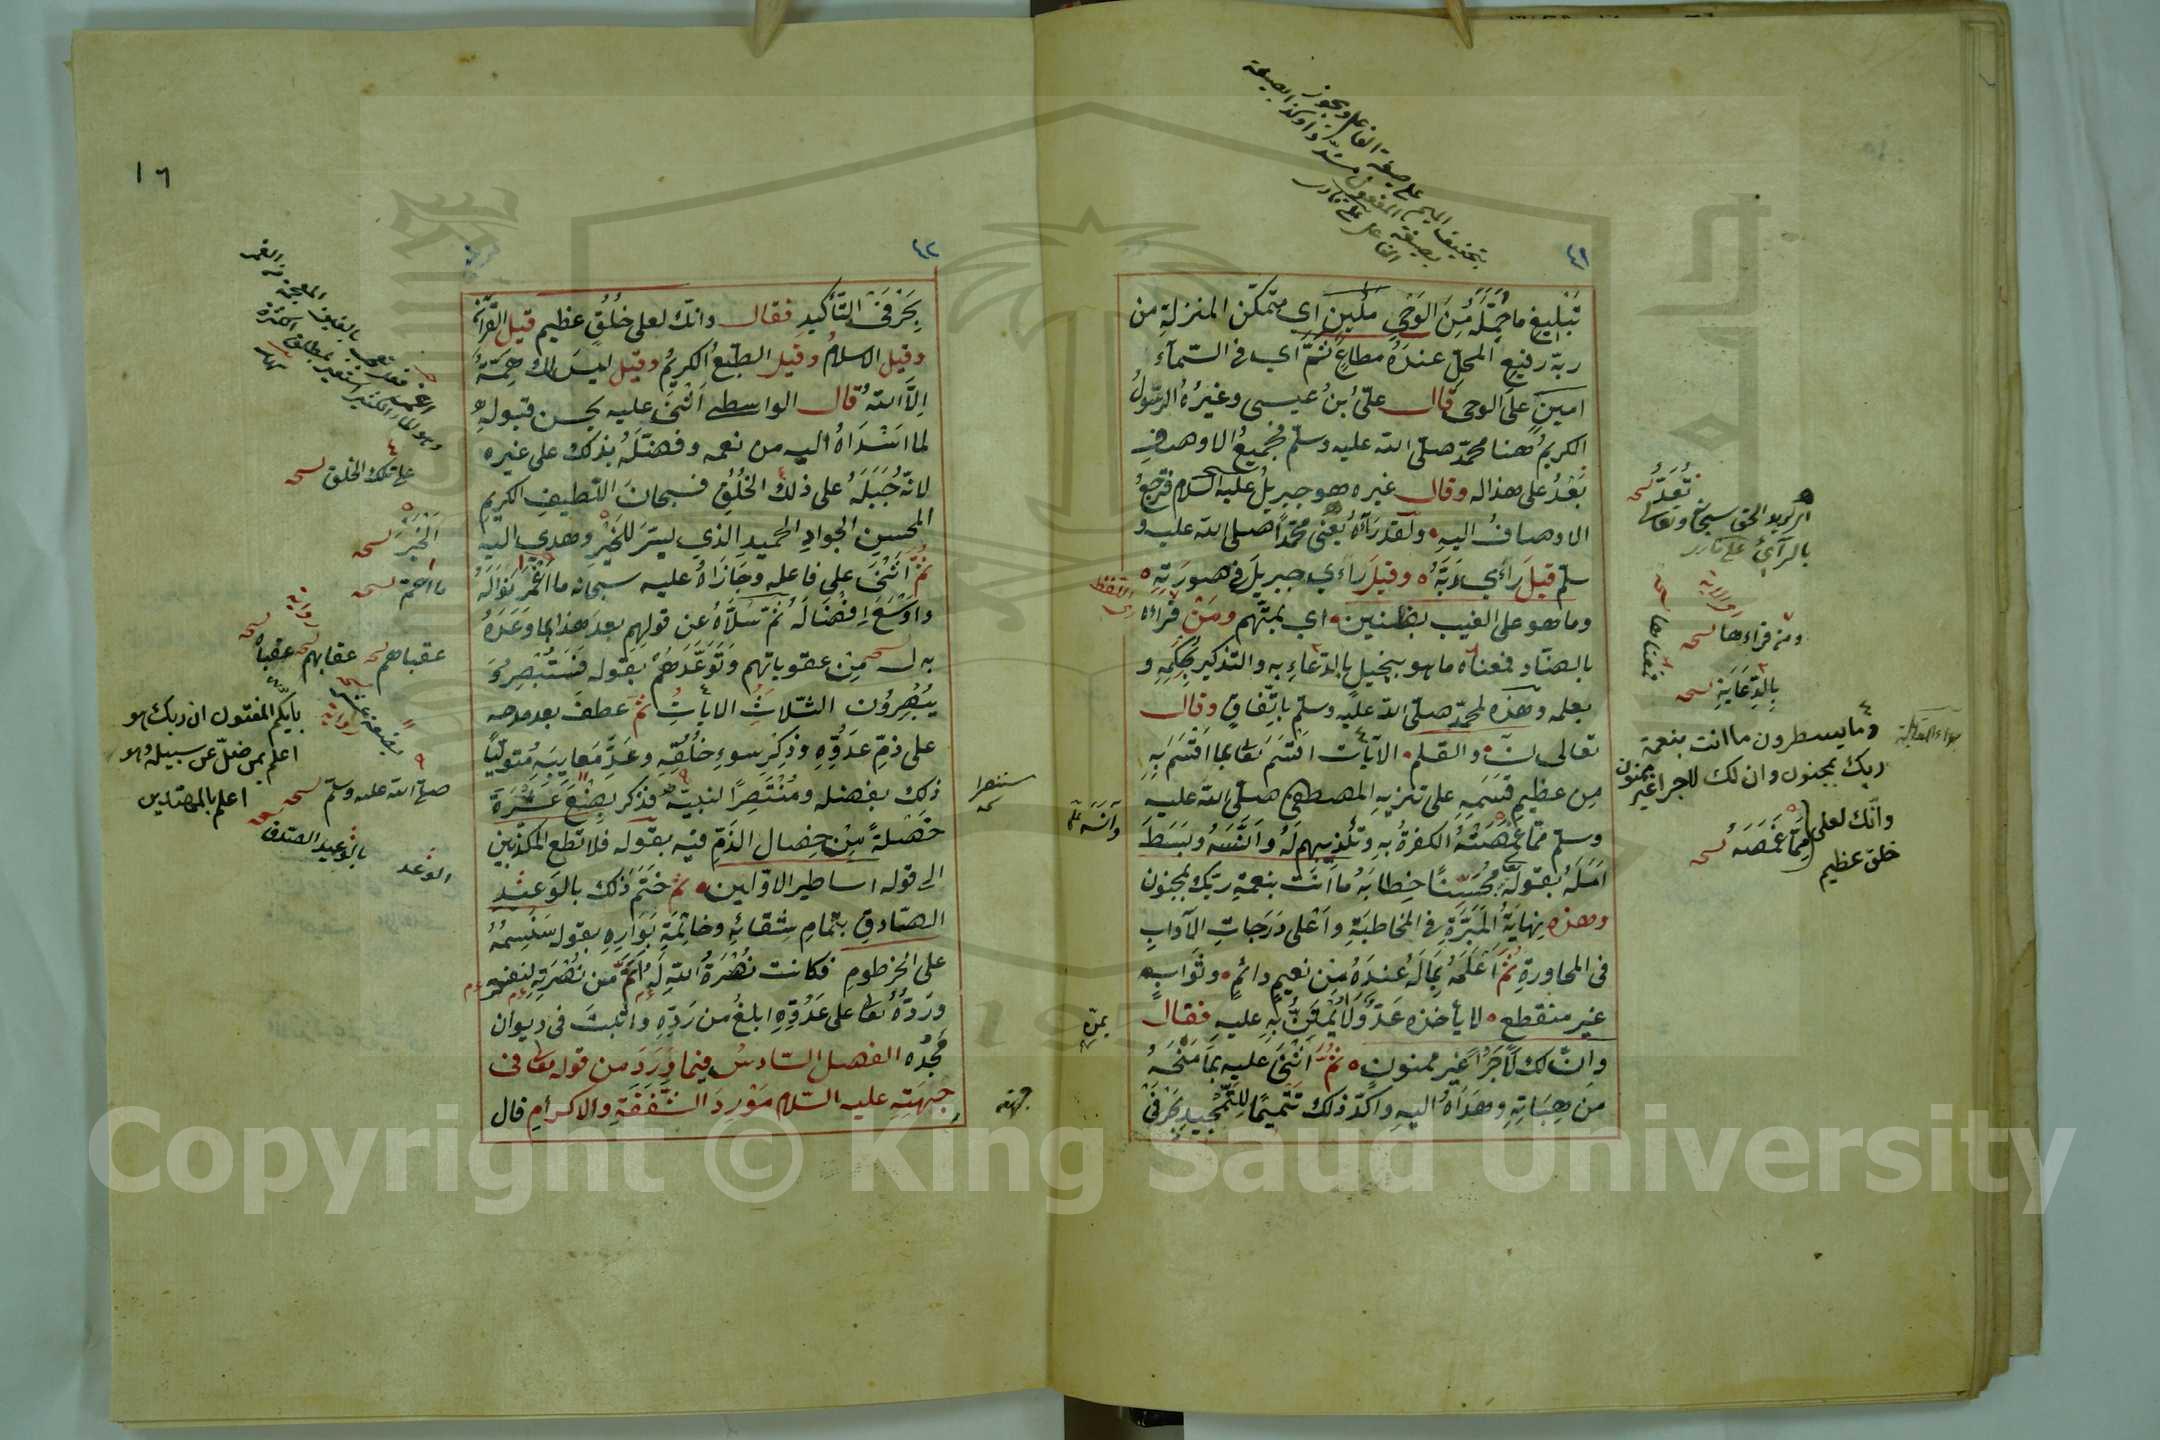 ٤١
تَبْليغِ ما حُمِّلَهُ مِنَ الوَحْيِ مَكِينٍ اي متمكّن المنزلةِ من
ربّه رفيعِ المحلّ عندَهُ مطاعٍ ثَمَّ اي في السّمآءِ
امينٍ على الوحي قال عليُّ بنُ عيسى وغيرُهُ الرسُولُ
الكريمُ هنا محمّدٌ صلّى الله عليه وسلّم فجميعُ الاوصافِ
بَعْدُ على هذا له وقال غيره هو جبريلُ عليه السلام فترجعُ
الاوصافُ اليهِ ولقد رَآهُ يَعْنى محمّدًا صلى الله عليه و
سلّم قيلَ رَأَى رَبَّهُ وقيلَ رَأَى جبريلَ في صورَتِهِ
وما هو على الغيب بظنين اي بمتّهمٍ ومَنْ قرأه
بالضّاد فمعناه ما هو ببخيلٍ بالدّعاءِ به والتذكير بحِكَمِهِ و
بعلمه وهَذِه لمحمّدٍ صلّى الله عليه وسلّم باتّفاقٍ وقال
تعالى نٓ والقلمِ الآيات اقْسَمَ تعالى بما اَقْسَمَ به
مِن عظيمِ قَسَمِهِ على تنزيهِ المصطفى صلّى الله عليه
وسلم ممّا غَمَصَتْهُ الكفرةُ بهِ وتكذيبِهم لَهُ وآنَسَهُ وبَسَطَ
اَمَلَهُ بقولِهِ مُحْسِنًا خِطابَهُ ما اَنْتَ بنعمةِ ربّك بمجنون
وهذه نِهايَةُ المَبَرَّةِ في المخاطبَةِ واَعْلى دَرَجَاتِ الآدابِ
في المحاورةِ ثُمَّ اَعْلَمَهُ بِمَا لَهُ عندَهُ مِن نعيمٍ دائمٍ وثَوابٍ
غيرِ منقطعٍ لا يأخذه عَدٌّ ولا يُمْتَنُّ بِهِ عليهِ فقالَ
وانّ لك لَاَجْرًا غير ممنونٍ ثمّ اَثْنَى عليه بما مَنَحَهُ
مِن هِبَاتِهِ وهَدَاهُ اليهِ واكّد ذلك تَتْميمًا لِلتَّمْجيدِ بحَرْفَىْ
بتخفيف الميم على صيغة الفاعل ويجوز
الفاعل على قارى
تُعَدُّ نسخه
بالرآئى على قارى
ومَن قراءها نسخه
فمعناها نسخه
بالدِّعَايَةِ نسخه
وما يسطرون ما انت بنعمة
ربك بمجنون وان لك لاجرا غير ممنون
وانّك لعلى
خلق عظيم
مِمَّا غَمَصَتْهُ نسخه
١٦
٤٢
بِحَرْفَىِ التّأكيدِ فقال وانّك لعلى خلُقٍ عظيم قيل القرآن
وقيل الاسلامُ وقيل الطّبعُ الكريمُ وقيل ليسَ لك هِمَّةٌ
اِلَّا اللهُ قال الواسطى اَثْنَى عليه بحسن قبولِهِ
لما اسْدَاهُ اليه من نعمه وفضّلَهُ بذلك على غيره
لانّهُ جَبَلَهُ على ذلك الخُلُقِ فسبحانَ اللّطيفِ الكريمِ
المحسنِ الجوادِ الحميدِ الذى يسّرَ للخيرِ وهدى اليهِ
ثُمَّ اَثْنَى على فاعلهِ وجَازَاهُ عليه سبحانه ما اَغْمَرَ نَوالَهُ
واوْسَعَ اِفْضَالَهُ ثُمّ سَلّاهُ عن قولِهِم بعدَ هذا بما وَعَدَهُ
به من عقوباتِهم وَتَوَعَّدَهُمْ بقوله فَسَتُبْصِرُ وَ
يُبْصِرُونَ الثّلاثُ الاياتُ ثمّ عطف بعد مدحه
على ذمِّ عدوِّهِ وذِكْرِ سوءِ خُلُقِهِ وعَدِّ مَعايبِهِ مُتولّيًا
ذلك بفضله ومُنْتَصِرًا لنبيّه فذكر بِضْعَ عَشْرَةَ
خَصْلَةً مِنْ خِصالِ الذّمِّ فيه بقوله فلا تطع المكذّبين
الى قوله اساطير الاوّلين ثمّ خَتَمَ ذلك بالوَعيدِ
الصّادِقِ بتمامِ شقائِهِ وخاتِمَةِ بَوَارِهِ بقوله سَنَسِمُهُ
على الخرطوم فكانت نُصْرَةُ اللهِ لَهُ اَتَمَّ من نُصْرَتِهِ لنفسِهِ
ورَدُّهُ تعالى على عَدُوِّهِ ابلغُ من رَدِّهِ واَثْبَتَ فى ديوان
مَجْدِه الفصل السّادسُ فيما وَرَدَ من قوله تعالى فى
جِهَتِهِ عليه السّلام مَوْرِدَ الشَّفَقَةِ والاكرامِ قال
على تلك الخلق نسخه
اَلْخَيْرَ نسخه
ما اعمّ نسخه
عقباهم نسخه عقابهم نسخه عقباه
بايّكم المفتون ان ربك هو
اعلم بمن ضلّ عن سبيله وهو
اعلم بالمهتدين
صلّى الله عليه وسلّم نسخه
بالوعيد الصدق
الوَعْد
جهته
Copyright © King Saud University